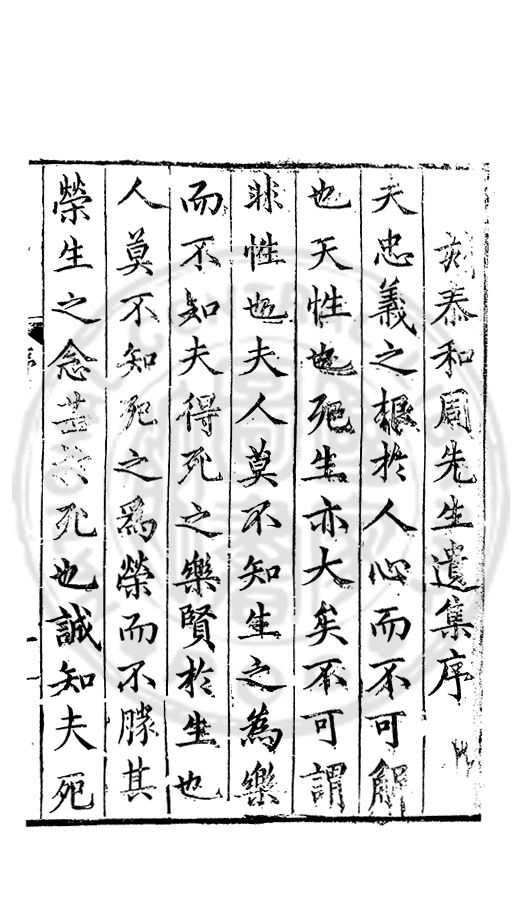 刻泰和周先生遺集序
夫忠義之根於人心而不可解
也天性也死生亦大矣不可謂
非性也夫人莫不知生之為樂
而不知夫得死之樂賢於生也
人莫不知死之為榮而不勝其
榮生之念苦死也誠知夫死